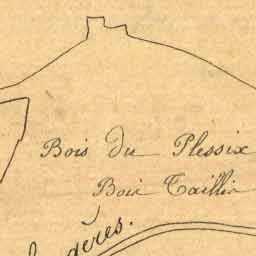 Bois du Plessix
Bois Taillis
gères.